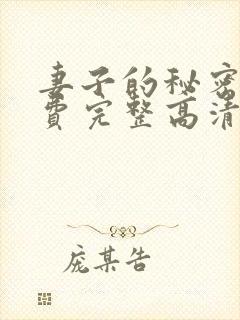 妻子的秘密
费完整高清
庞某告